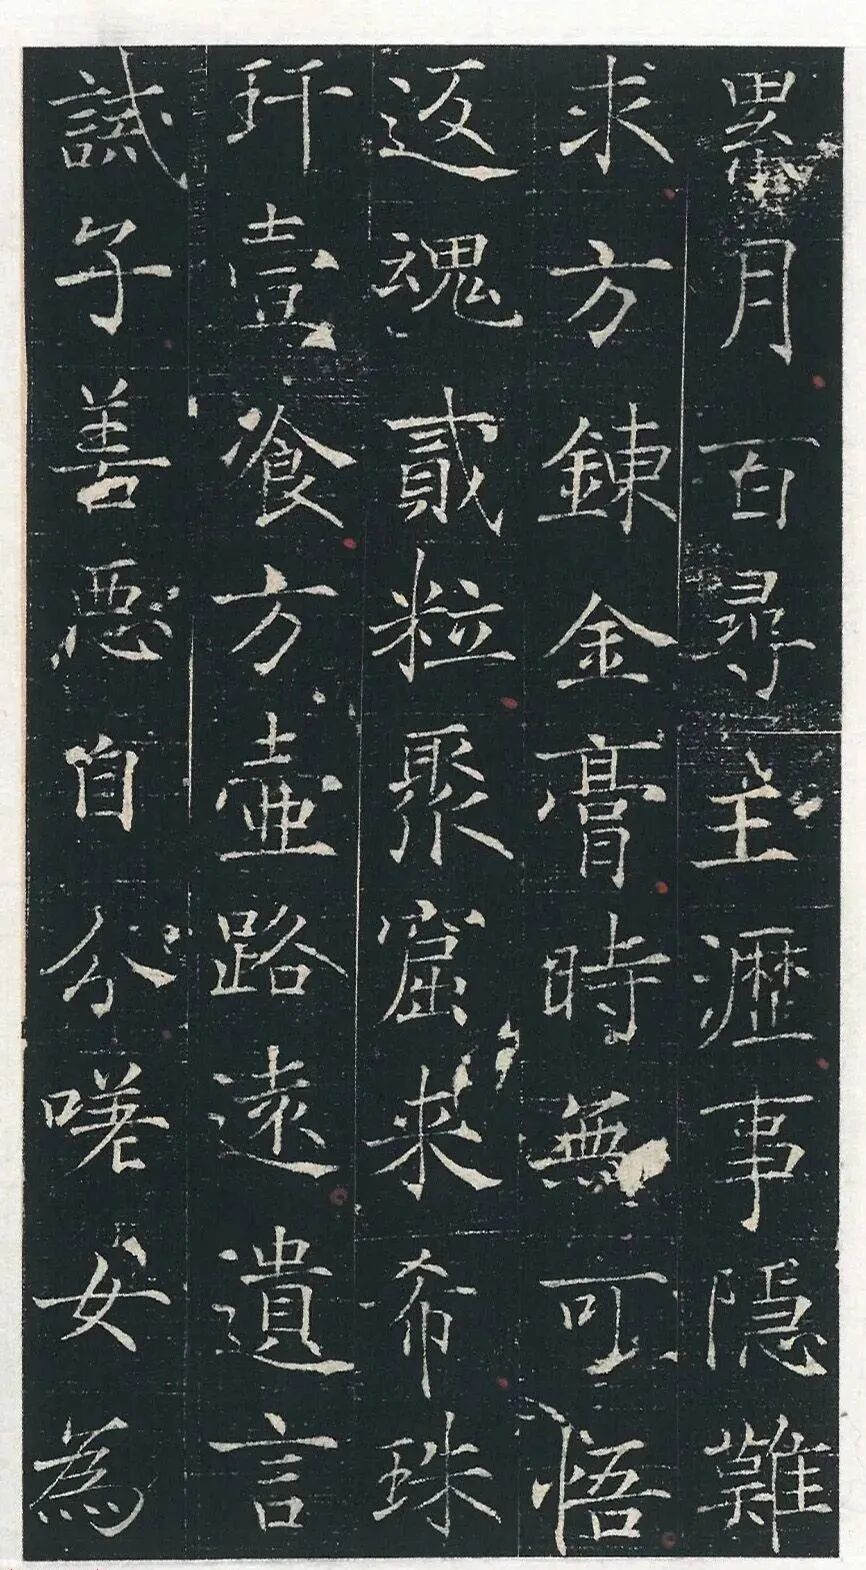 累月百尋主瀝事隱難
求方鍊金膏時無可悟
返魂貳粒聚窟來希珠
玕壹飡方壺路遠遺言
誡子善惡自分嗟女為